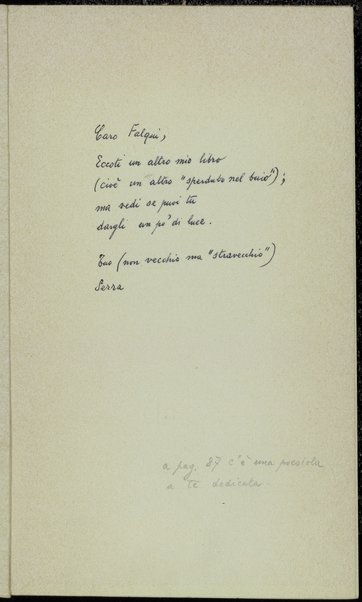 Caro Falqui,
Eccoti un altro mio libro
(cioè un altro "sperduto nel buio");
ma vedi se puoi tu
dargli un po' di luce.
Tuo (non vecchio ma "stravecchio")
Serra
a pag. 87 c'è una poesiola
a te dedicata.